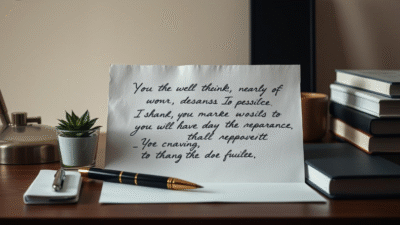 You the well think, nearly of
wonr, desanss To pessice.
I shank, you marke wosits to
you will have day the reparance,
thall reppoveitt
- Yoe cnaving,
to thang the doe fuilee.